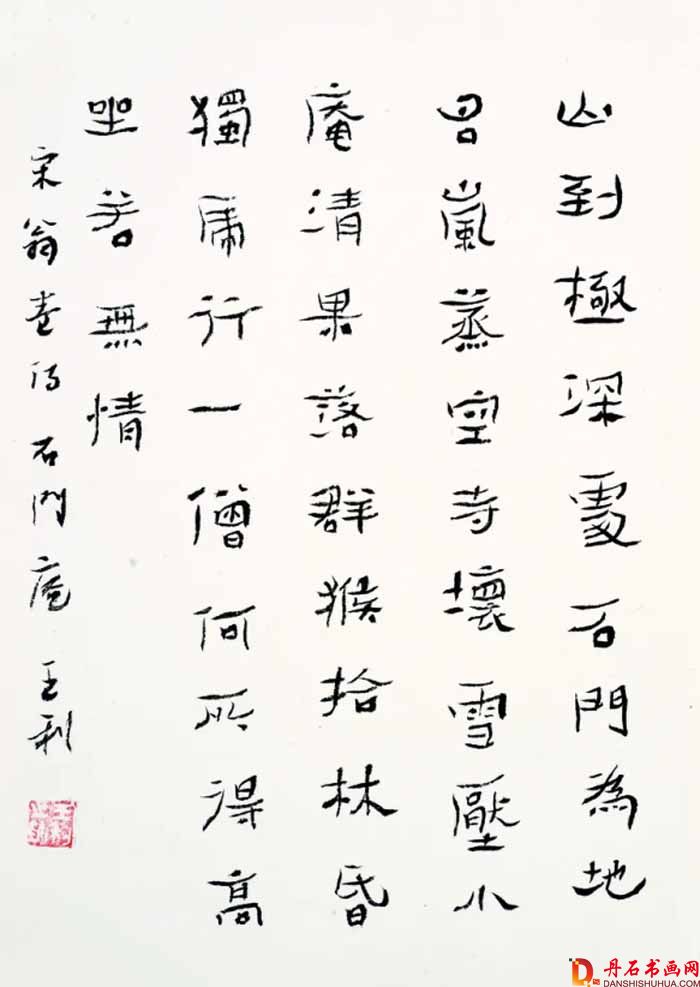 山到極深處石門為地
名嵐蒸空寺壞雪壓小
庵清果落群猴拾林昏
獨虎行一僧何所得高
坐若無情
宋翁卷詩石門庵 王利
丹石书画网
DANSHISHUHUA.COM